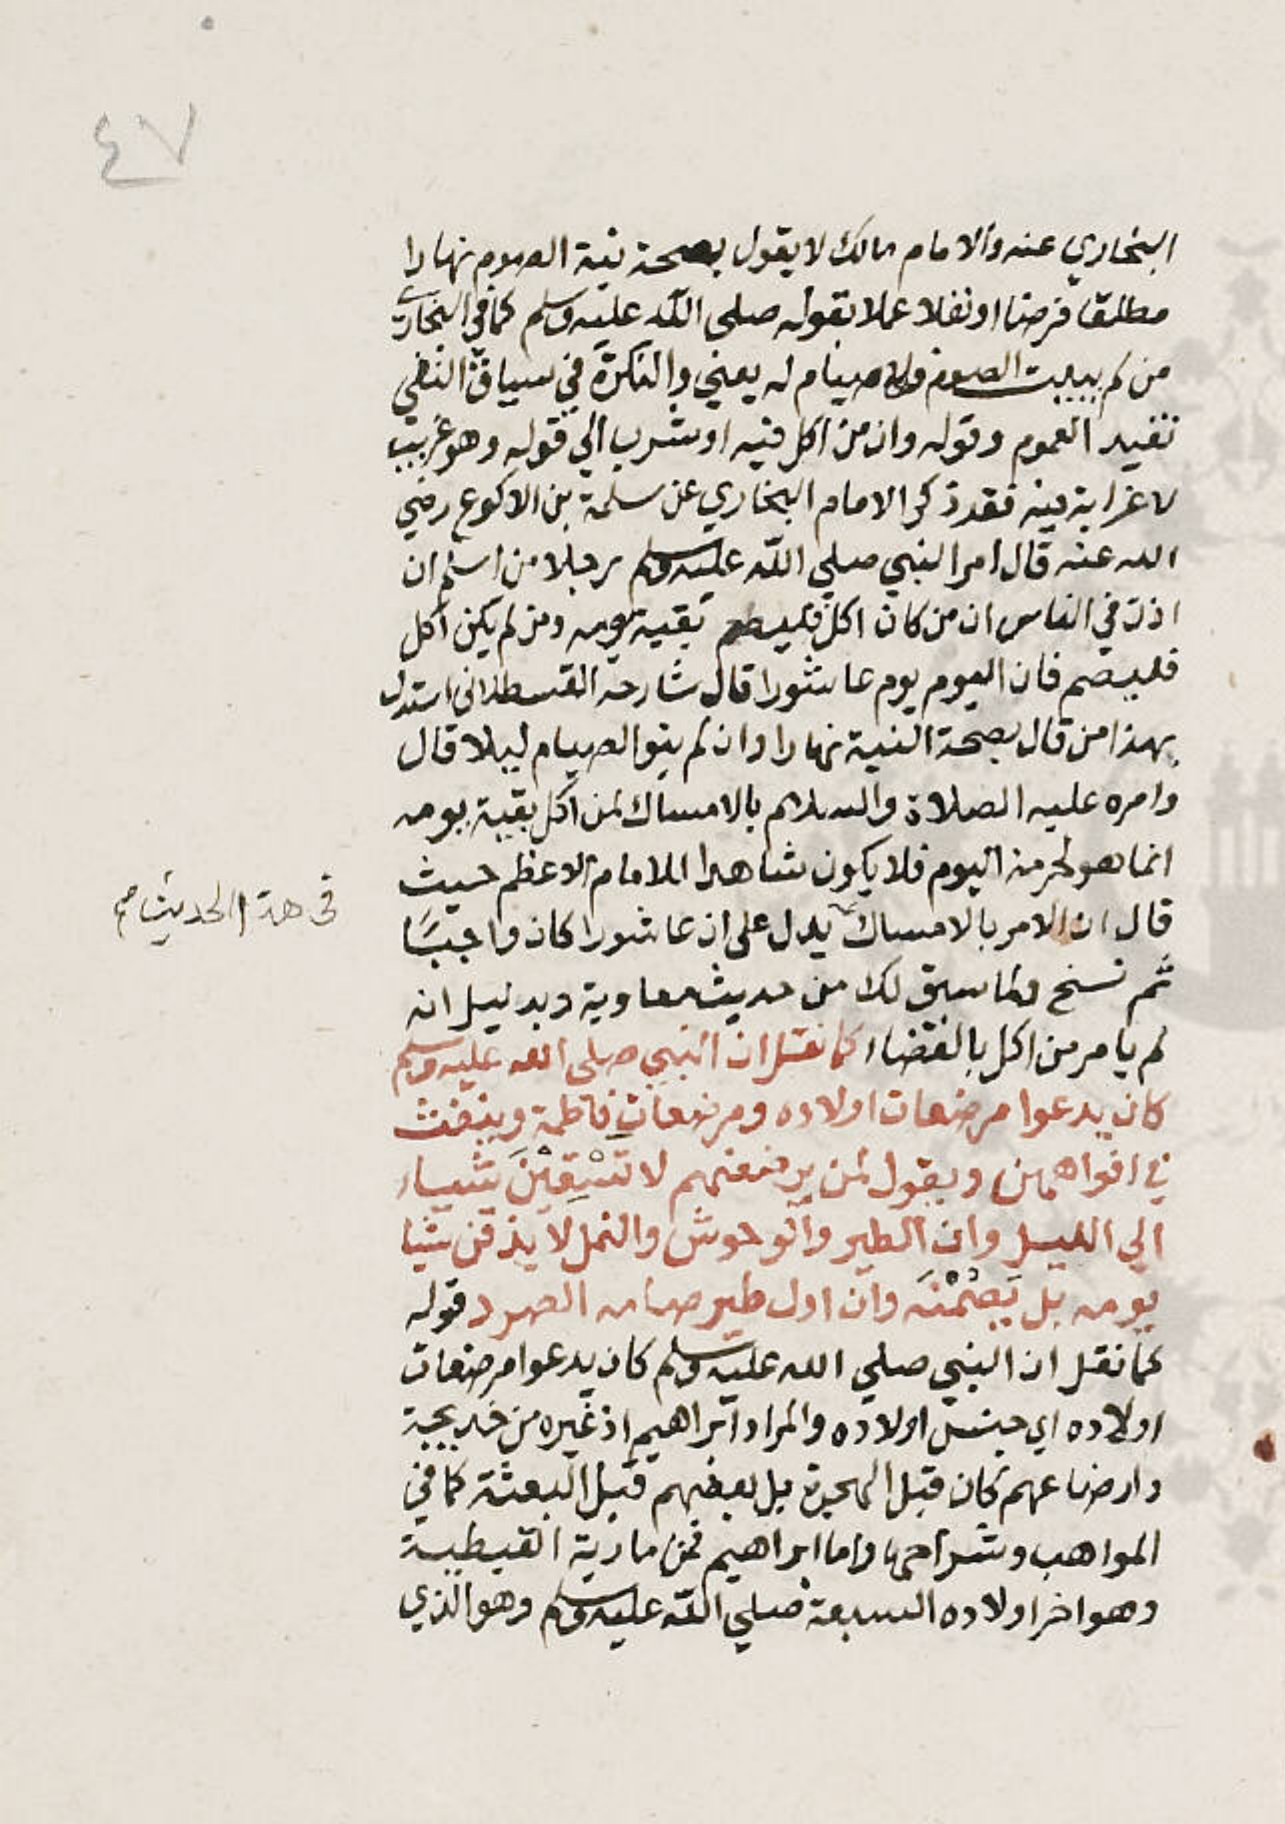 ٤٧
البخاري عنه والامام مالك لا يقول بصحة نية الصوم نهارا
مطلقا فرضا او نفلا عملا بقوله صلى الله عليه وسلم كما في البخاري
من لم يبيت الصوم فلا صيام له يعني والنكرة في سياق النفي
تفيد العموم وقوله وان من اكل فيه او شرب الي قوله وهو غريب
لا غرابة فيه فقد ذكر الامام البخاري عن سلمة بن الاكوع رضي
الله عنه قال امر النبي صلي الله عليه وسلم رجلا من اسلم ان
اذن في الناس ان من كان اكل فليصم بقية يومه ومن لم يكن اكل
فليصم فان اليوم يوم عاشورا قال شارحه القسطلاني استدل
بهذا من قال بصحة النية نهارا وان لم ينو الصيام ليلا قال
وامره عليه الصلاة والسلام بالامساك لمن اكل بقية يومه
انما هو لحرمة اليوم فلا يكون شاهدا للامام الاعظم حيث
قال ان الامر بالامساك يدل على ان عاشورا كان واجبًا
في هذا الحديث صح
ثم نسخ كما سبق لك من حديث معاوية وبدليل انه
لم يامر من اكل بالقضاء كما نقل ان النبي صلى الله عليه وسلم
كان يدعوا مرضعات اولاده ومرضعات فاطمة وينفث
في افواههن ويقول لمن يرضعنهم لا تَسْقِيْنَ شياء
الي الليل وان الطير والوحوش والنمل لا يذقن شيا
يومه بل يَصُمْنَه وان اول طير صامه الصرد قوله
كما نقل ان النبي صلي الله عليه وسلم كان يدعوا مرضعات
اولاده اي جنس اولاده والمراد ابراهيم اذ غيره من خديجة
وارضاعهم كان قبل الهجرة بل بعضهم قبل البعثة كما في
المواهب وشراحها واما ابراهيم فمن مارية القبطية
وهو اخر اولاده السبعة صلي الله عليه وسلم وهو الذي